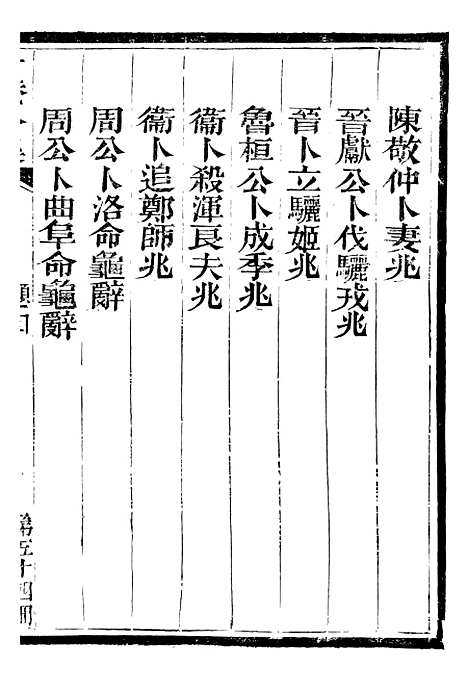 陳敬仲卜妻兆
晉獻公卜伐驪戎兆
晉卜立驪姬兆
魯桓公卜成季兆
衞卜殺渾良夫兆
衞卜追鄭師兆
周公卜洛命龜辭
周公卜曲阜命龜辭
第五十四冊